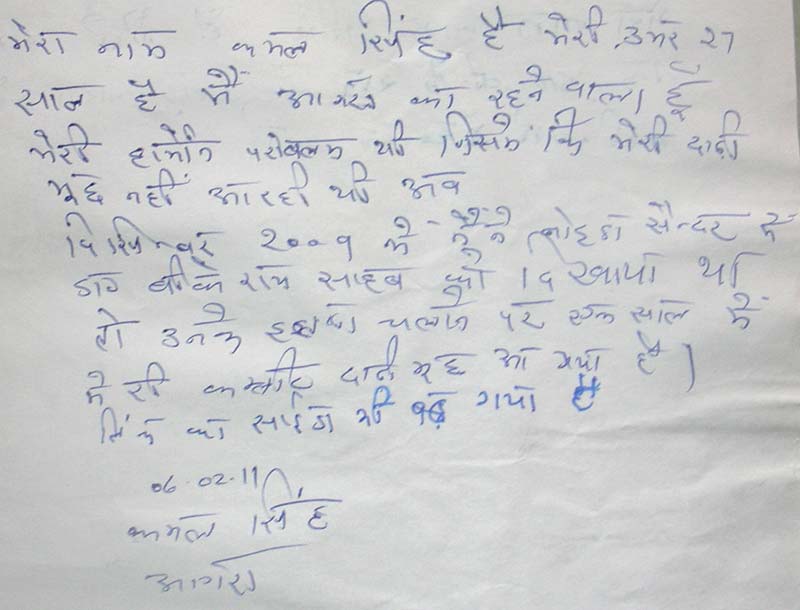 मेरा नाम कमल सिंह है मेरी उमर 27
साल है मैं आगरा का रहने वाला हूँ
मेरी हार्मोन परोबलम थी जिसमे कि मेरी दाढ़ी
मूछ नहीं आ रही थी अब
दिसम्बर 2009 में मैंने सैन्टर में
डा० बी०के राय साहब को दिखाया था
तो उनके इलाज चलने पर एक साल में
मेरी कम्पलीट दाढ़ी मूछ आ गया है।
लिंग का साईज भी बढ़ गया है
06.02.11
कमल सिंह
आगरा